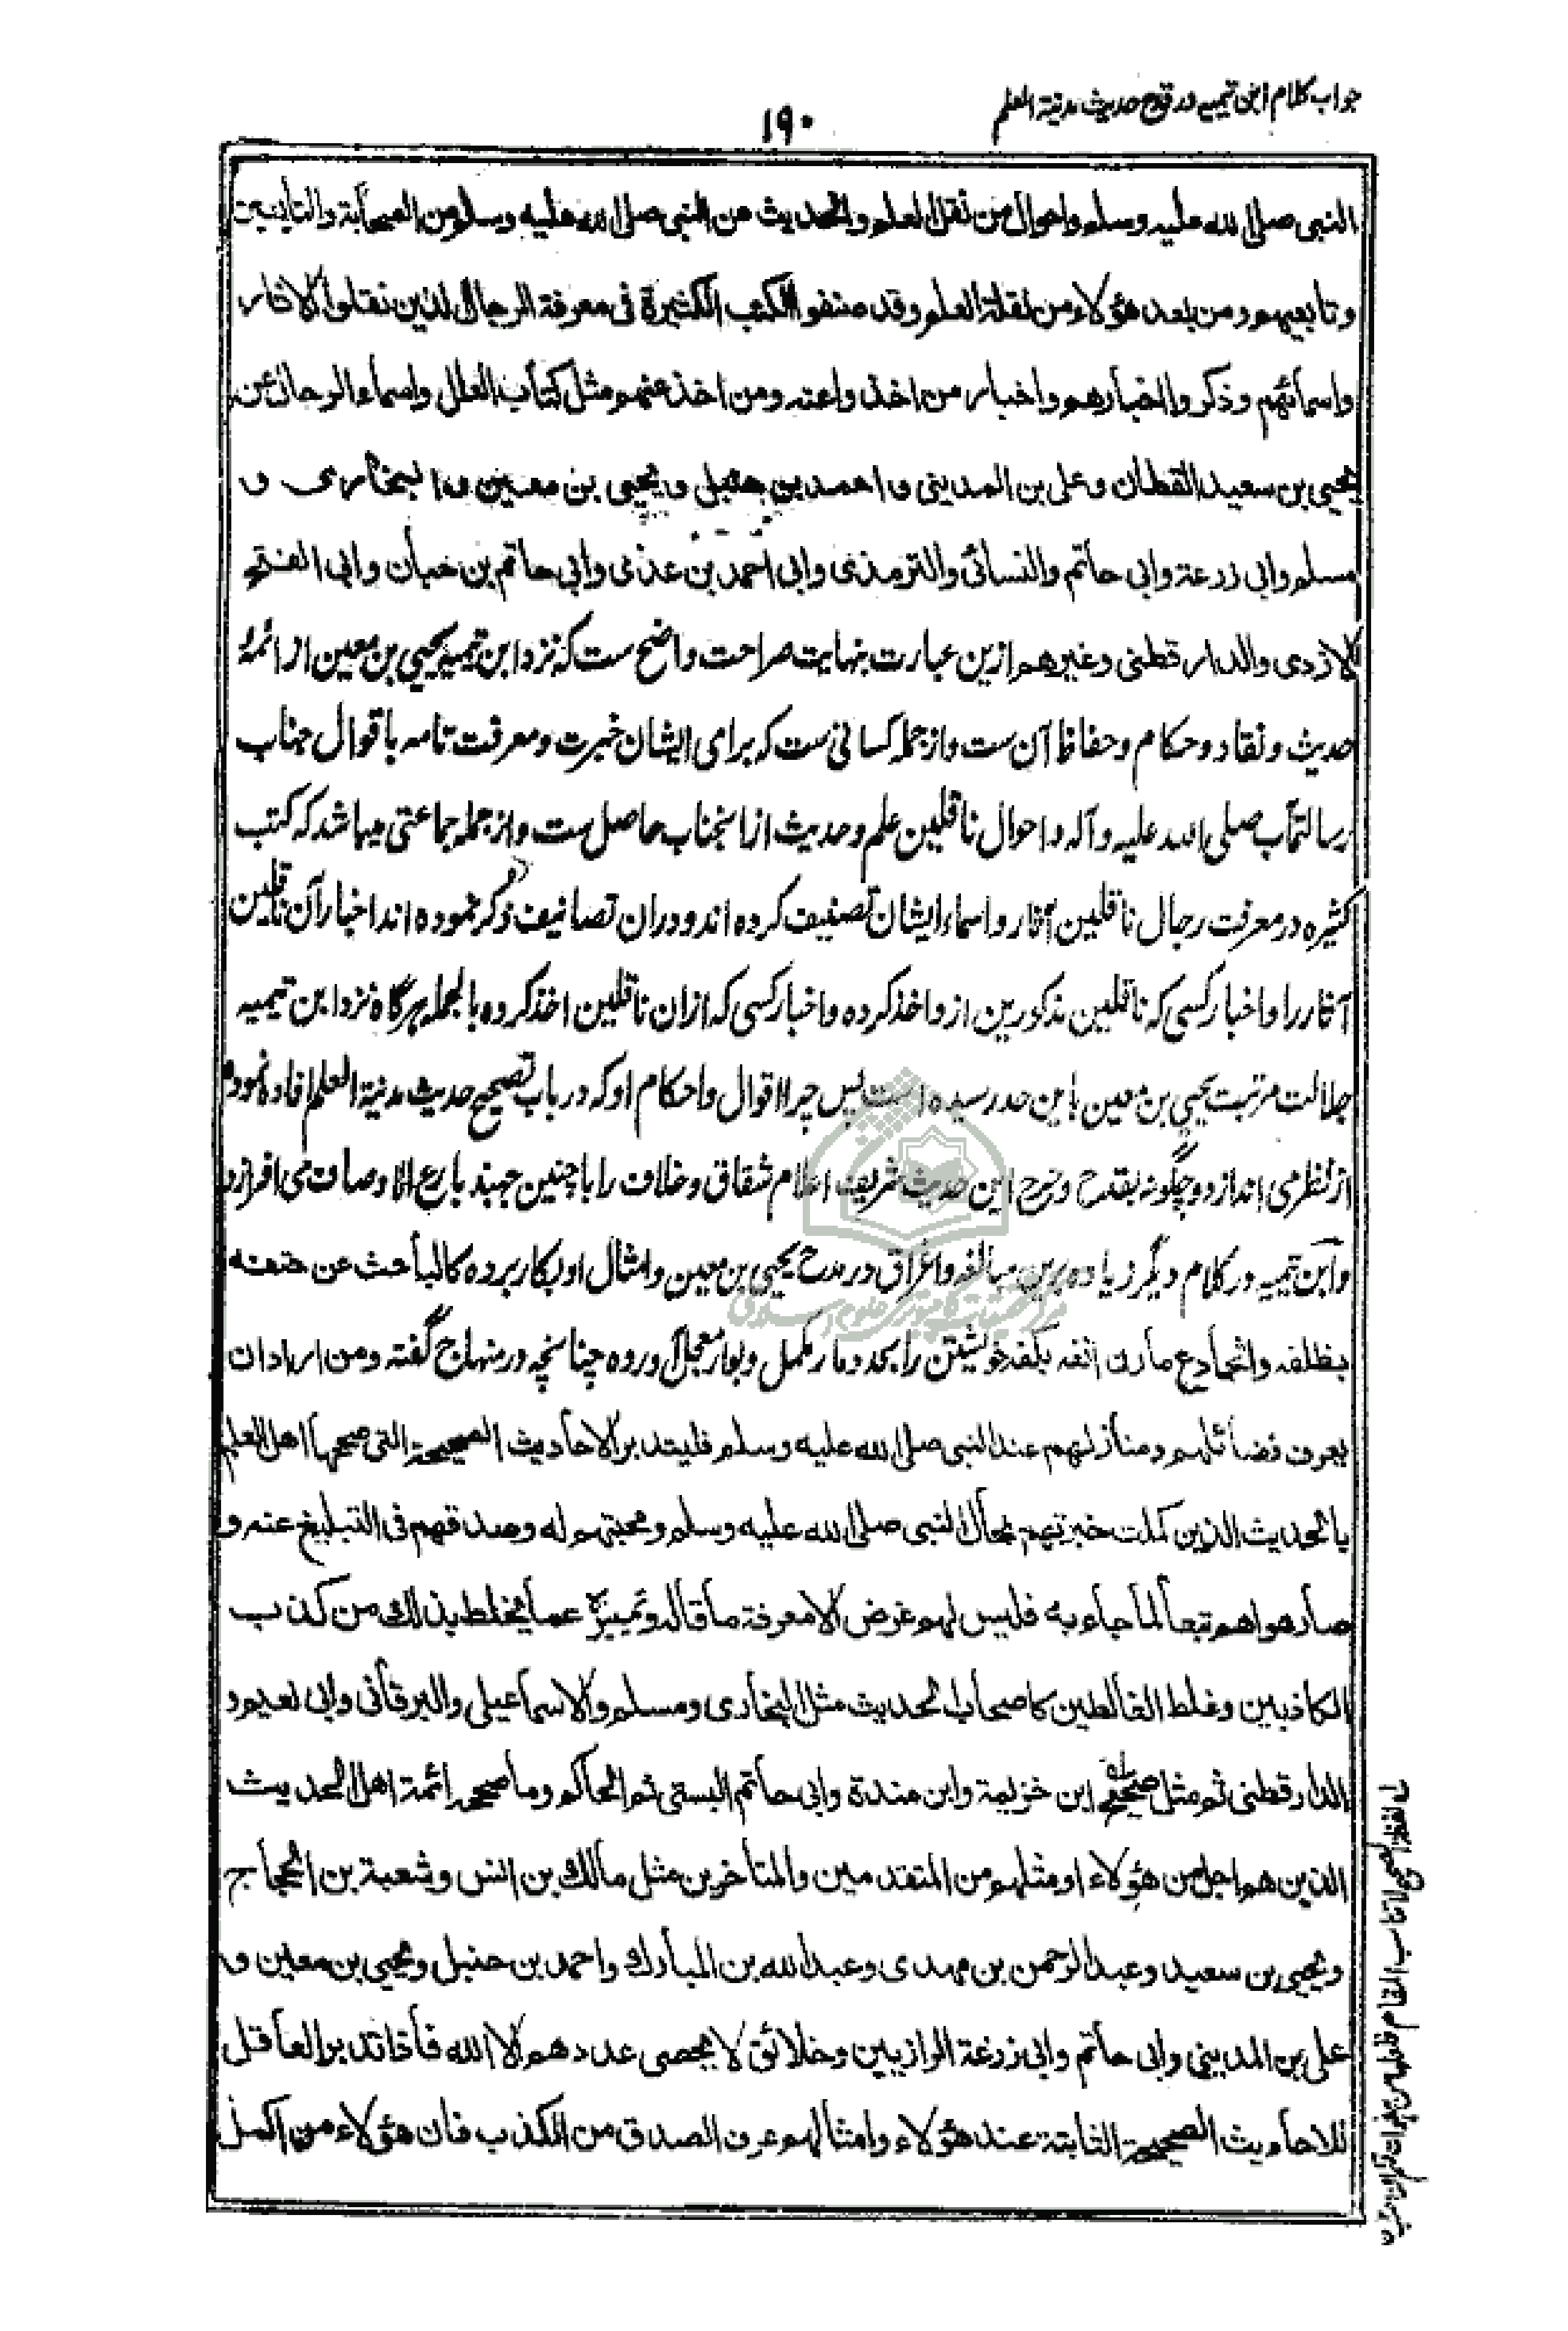 جواب کلام ابن تیمیه در قدح حدیث مدینة العلم
۱۹۰
النبی صلی الله علیه وسلم واحوال من نقل العلم والحدیث عن النبی صلی الله علیه وسلم من الصحابة والتابعین
وتابعیهم ومن بعد هؤلاء من نقلة العلم وقد صنفوا الکتب الکثیرة فی معرفة الرجال الذین نقلوا الاثار
واسمائهم وذکروا اخبارهم واخبار من اخذوا عنه ومن اخذ عنهم مثل کتاب العلل واسماء الرجال عن
یحیی بن سعید القطان وعلی بن المدینی واحمد بن حنبل ویحیی بن معین والبخاری و
مسلم وابی زرعة وابی حاتم والنسائی والترمذی وابی احمد بن عدی وابی حاتم بن حبان وابی الفتح
الازدی والدارقطنی وغیرهم ازین عبارت بنهایت صراحت واضح ست که نزد ابن تیمیه یحیی بن معین از ائمهٔ
حدیث ونقاد وحکام وحفاظ آن ست واز جمله کسانی ست که برای ایشان خبرت ومعرفت تامه باقوال جناب
رسالتمآب صلی الله علیه وآله واحوال ناقلین علم وحدیث ازانجناب حاصل ست واز جمله جماعتی میباشد که کتب
کثیره در معرفت رجال ناقلین آثار واسماء ایشان تصنیف کرده اند ودران تصانیف ذکر نموده اند اخبار آن ناقلین
آثار را واخبار کسی که ناقلین مذکورین ازو اخذ کرده واخبار کسی که ازان ناقلین اخذ کرده بالجمله هرگاه نزد ابن تیمیه
جلالت مرتبت یحیی بن معین باین حد رسیده است پس چرا اقوال واحکام او که در باب تصحیح حدیث مدینة العلم افاده نموده
از نظر می اندازد وچگونه بقدح وجرح این حدیث شریف اعلام شقاق وخلاف را با چنین جهبذ بارع الاوصاف می افرازد
وابن تیمیه در کلام دیگر زیاده برین مبالغه واغراق در مدح یحیی بن معین وامثال او بکار برده کالباحث عن حتفه
بظلفه والجادع مارن انفه بکفه خویشتن را بحد دمار مکمل وبوار معجل آورده چنانچه در منهاج گفته ومن اراد ان
یعرف فضائلهم ومنازلهم عند النبی صلی الله علیه وسلم فلیتدبر الاحادیث الصحیحة التی صححها اهل العلم
بالحدیث الذین کملت خبرتهم بحال النبی صلی الله علیه وسلم ومحبتهم له وصدقهم فی التبلیغ عنه و
صار هواهم تبعا لما جاء به فلیس لهم غرض الا معرفة ما قاله وتمییزه عما یخلط بذلک من کذب
الکاذبین وغلط الغالطین کاصحاب الحدیث مثل البخاری ومسلم والاسماعیلی والبرقانی وابی نعیم و
الدارقطنی ثم مثل صحیح ابن خزیمة وابن مندة وابی حاتم البستی ثم الحاکم وما صححه ائمة اهل الحدیث
الذین هم اجل من هؤلاء او مثلهم من المتقدمین والمتأخرین مثل مالک بن انس وشعبة بن الحجاج
ویحیی بن سعید وعبد الرحمن بن مهدی وعبد الله بن المبارک واحمد بن حنبل ویحیی بن معین و
علی بن المدینی وابی حاتم وابی زرعة الرازیین وخلائق لا یحصی عددهم الا الله فاذا تدبر العاقل
للاحادیث الصحیحة الثابتة عند هؤلاء وامثالهم عرف الصدق من الکذب فان هؤلاء من اکمل
لفظ الصحیح لا تناسب المقام